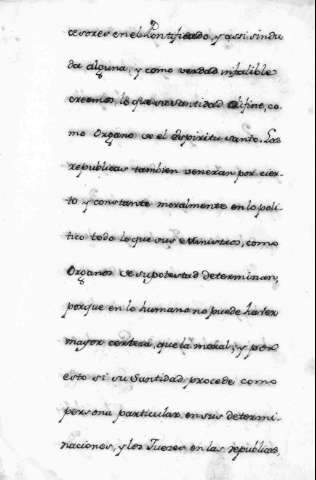 cesores en el Pontificado, y assi sin du
da alguna, y como verdad infalible
creemos, lo que su santidad difine, co
mo Organo de el espiritu santo. Las
republicas tambien veneran por cier-
to y constante moralmente en lo poli
tico todo lo que sus Ministros, como
Organos de su potestad determinan,
porque en lo humano no puede haver
mayor certeza, que la moral; y por
esto si su Santidad procede como
persona particular en sus determi-
naciones, y los Jueces en las republicas,